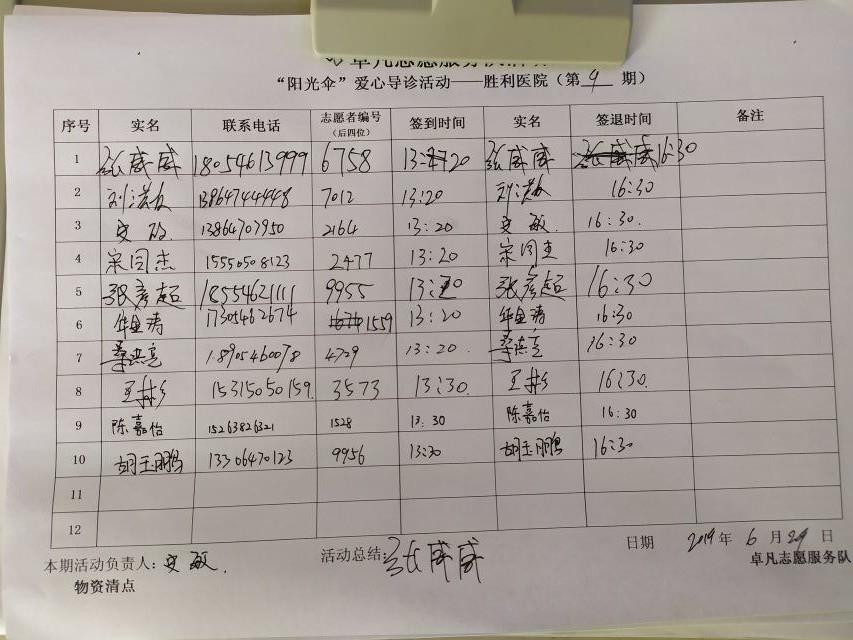 卓凡志愿服务队活动
“阳光伞”爱心导诊活动——胜利医院（第 9 期）
序号 实名 联系电话 志愿者编号（后四位） 签到时间 实名 签退时间 备注
1 张威威 18054613999 6758 13:20 张威威 16:30
2 刘洪敏 13864744448 7012 13:20 刘洪敏 16:30
3 安敏 13864707950 2164 13:20 安敏. 16:30.
4 宋闫杰 15550508123 2477 13:20 宋闫杰 16:30
5 张彦超 18554621111 9955 13:20 张彦超 16:30
6 17305462674 1559 13:20 16:30
7 18905460078 4729 13:20. 16:30
8 王彬 15315050159. 3573 13:30. 王彬 16:30.
9 陈嘉怡 15263826321 1528 13:30 陈嘉怡 16:30
10 胡玉鹏 13306470123 9956 13:30 胡玉鹏 16:30
11
12
本期活动负责人：安敏. 活动总结：张威威 日期 2019 年 6 月 29 日
物资清点 卓凡志愿服务队